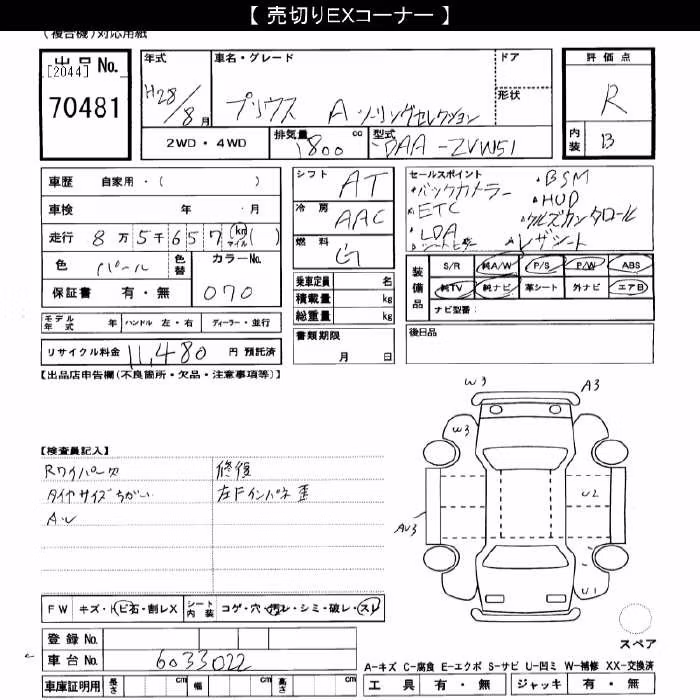 【 売切りEXコーナー 】
(複合機)対応用紙
出品 No.
[2044]
70481
年式
H28/8月
車名・グレード
プリウス A ツーリングセレクション
ドア
形状
評価点
R
内装 B
2WD・4WD
排気量 1800 cc
型式 DAA-ZVW51
車歴 自家用・( )
車検 年・月
走行 8万5千657 km マイル ( )
色 パール
色替
カラーNo. 070
保証書 有・無
シフト AT
冷房 AAC
燃料 G
乗車定員 名
積載量 kg
総重量 kg
セールスポイント
・バックカメラー ・BSM
・ETC ・HUD
・LDA ・クルーズコンタロール
・シートヒーター ・レザシート
装備品
S/R 純A/W P/S P/W ABS
純TV 純ナビ 革シート 外ナビ エアB
ナビ型番:
モデル年式 年 ハンドル 左・右 ディーラー・並行
書類期限
月 日
後日品
リサイクル料金 11,480 円 預託済
【出品店申告欄(不良箇所・欠品・注意事項等)】
W3
A3
W3
【検査員記入】
Rワイパー欠
修復
タイヤサイズちがい
左Fインパネ歪
U2
AW
AU3
U1
FW キズ・トビ石・割レX
シート内装 コゲ・穴・汚レ・シミ・破レ・スレ
登録 No.
スペア
車台 No. 6033022
A-キズ C-腐食 E-エクボ S-サビ U-凹ミ W-補修 XX-交換済
車庫証明用 長さ cm 幅 cm 高さ cm
工具 有・無 ジャッキ 有・無